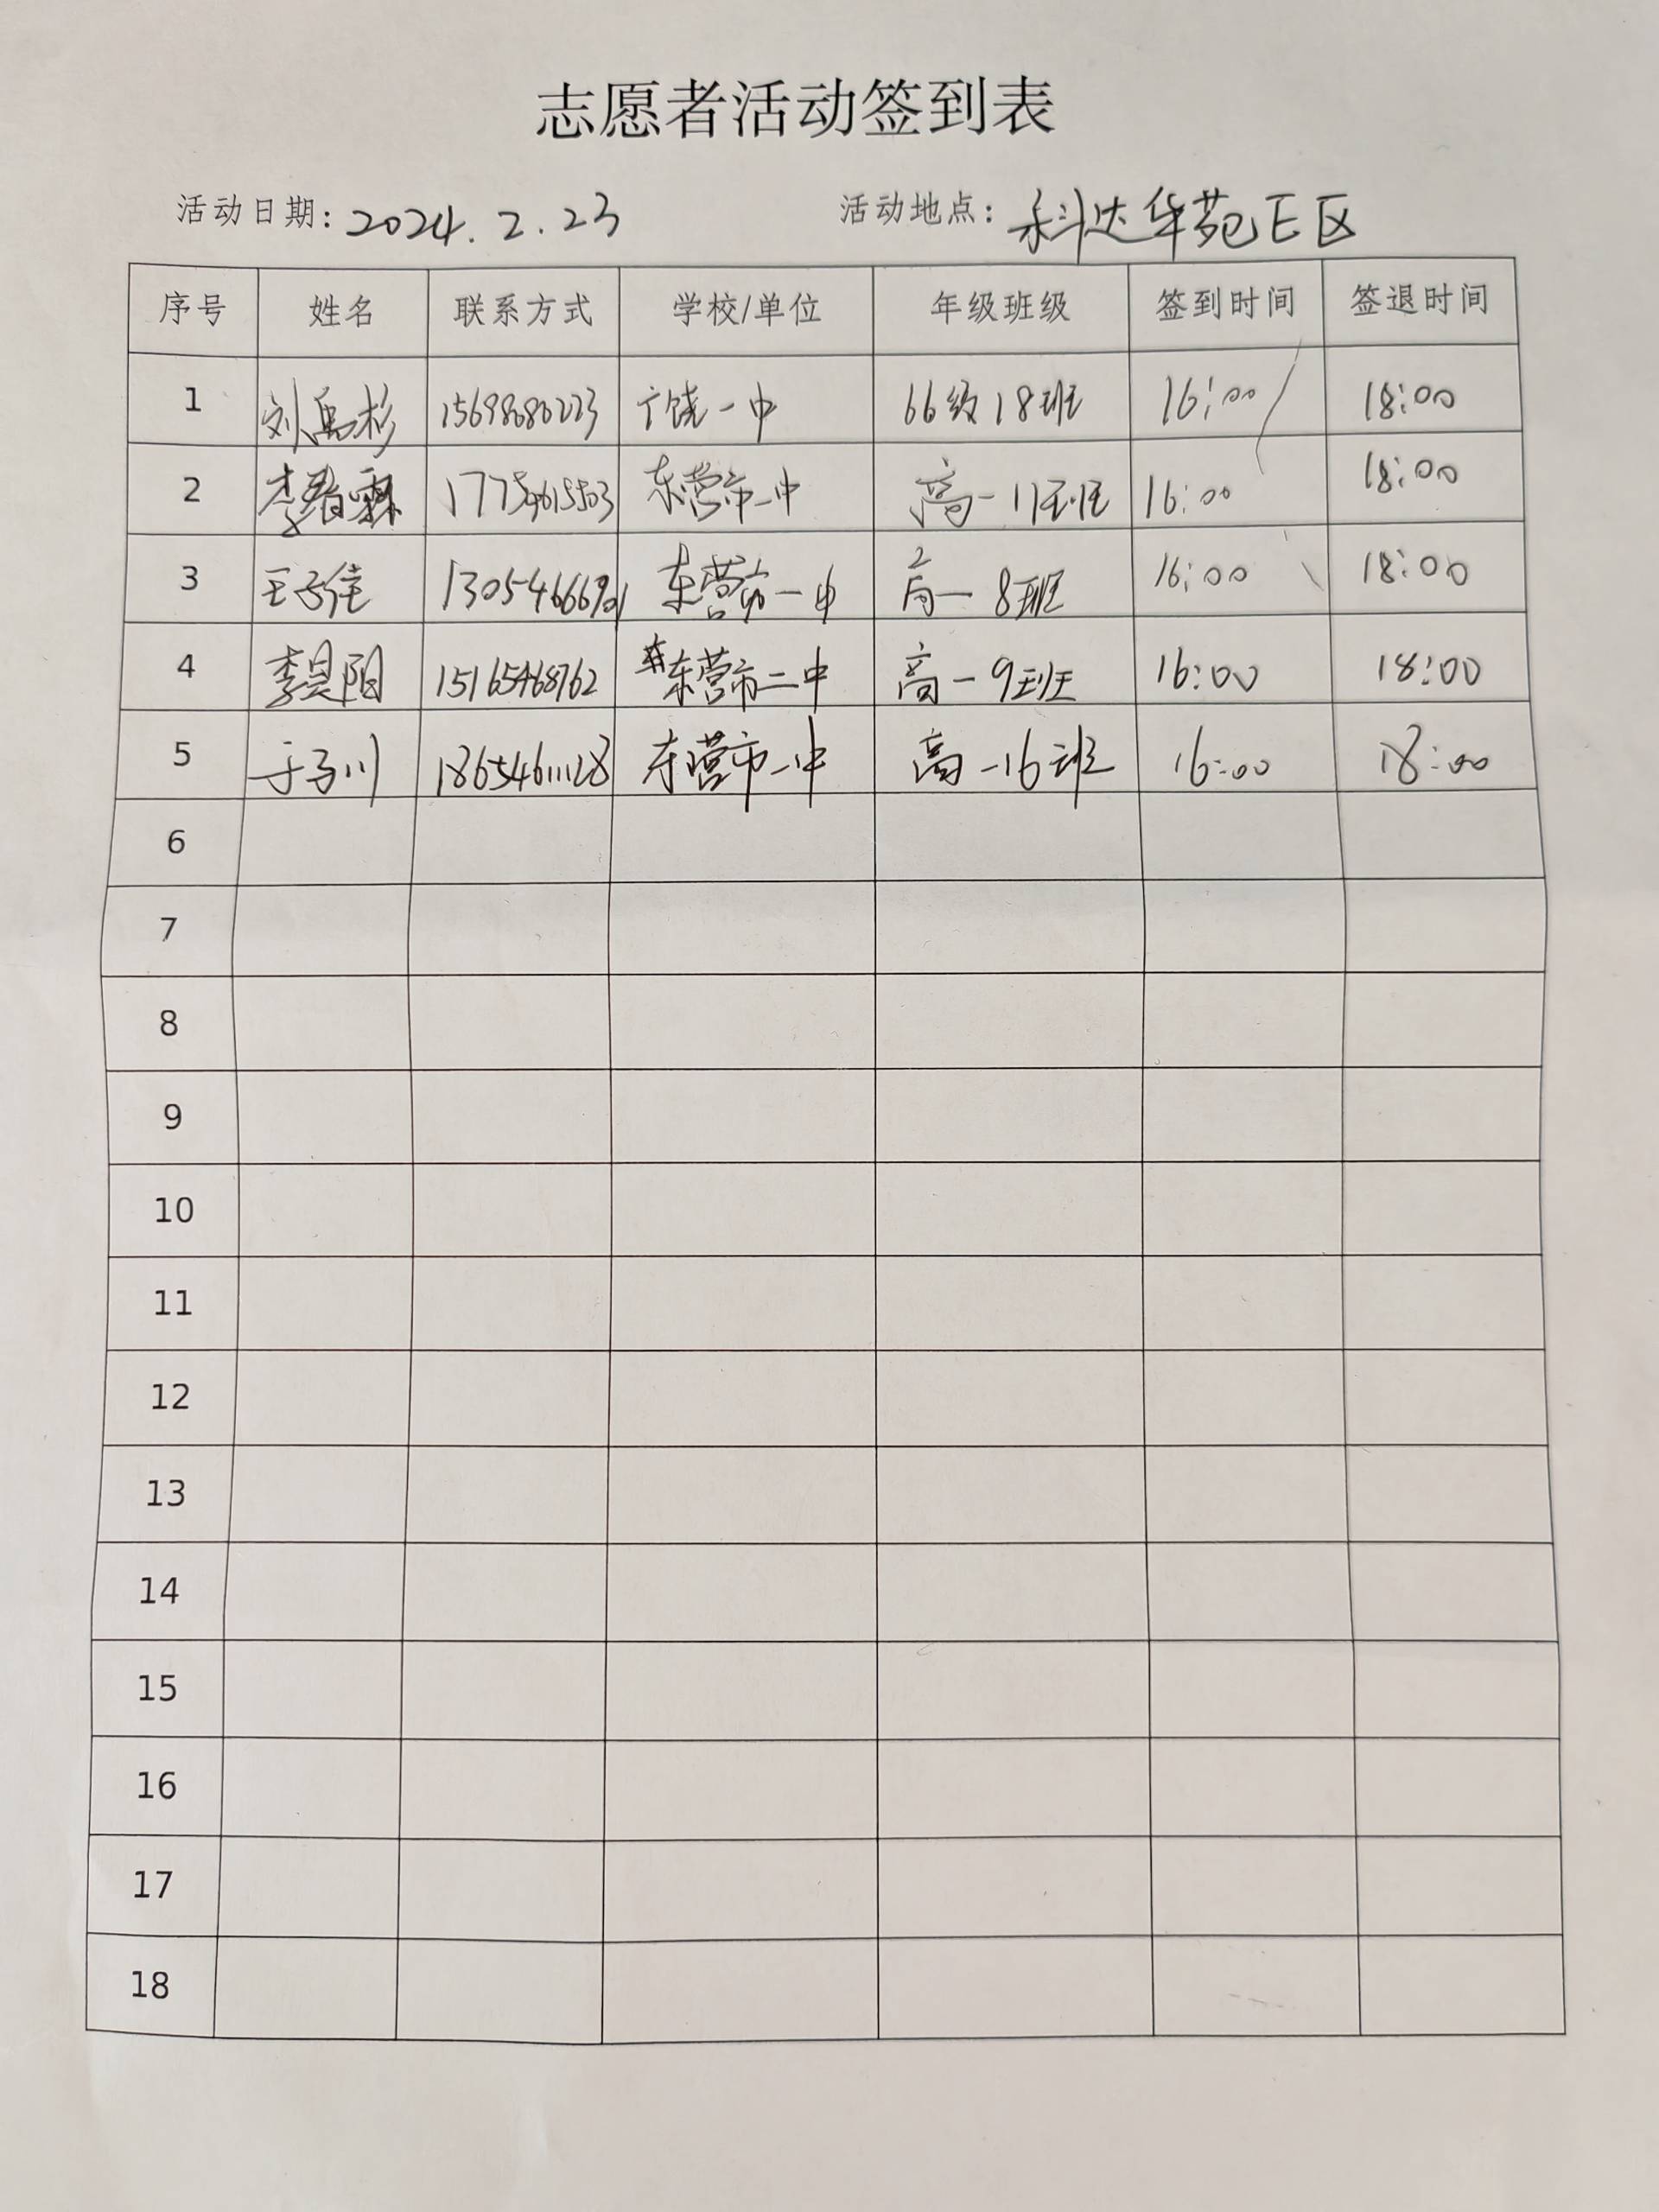 志愿者活动签到表
活动日期: 2024.2.23 活动地点: 科达华苑E区
序号 姓名 联系方式 学校/单位 年级班级 签到时间 签退时间
1 刘禹杉 15698080223 广饶一中 66级18班 16:00 18:00
2 李春霖 东营市一中 高一11班 16:00 18:00
3 王子佳 东营市一中 高一8班 16:00 18:00
4 李昊阳 15165468762 东营市二中 高一9班 16:00 18:00
5 于子川 18654611128 东营市一中 高一16班 16:00 18:00
6
7
8
9
10
11
12
13
14
15
16
17
18